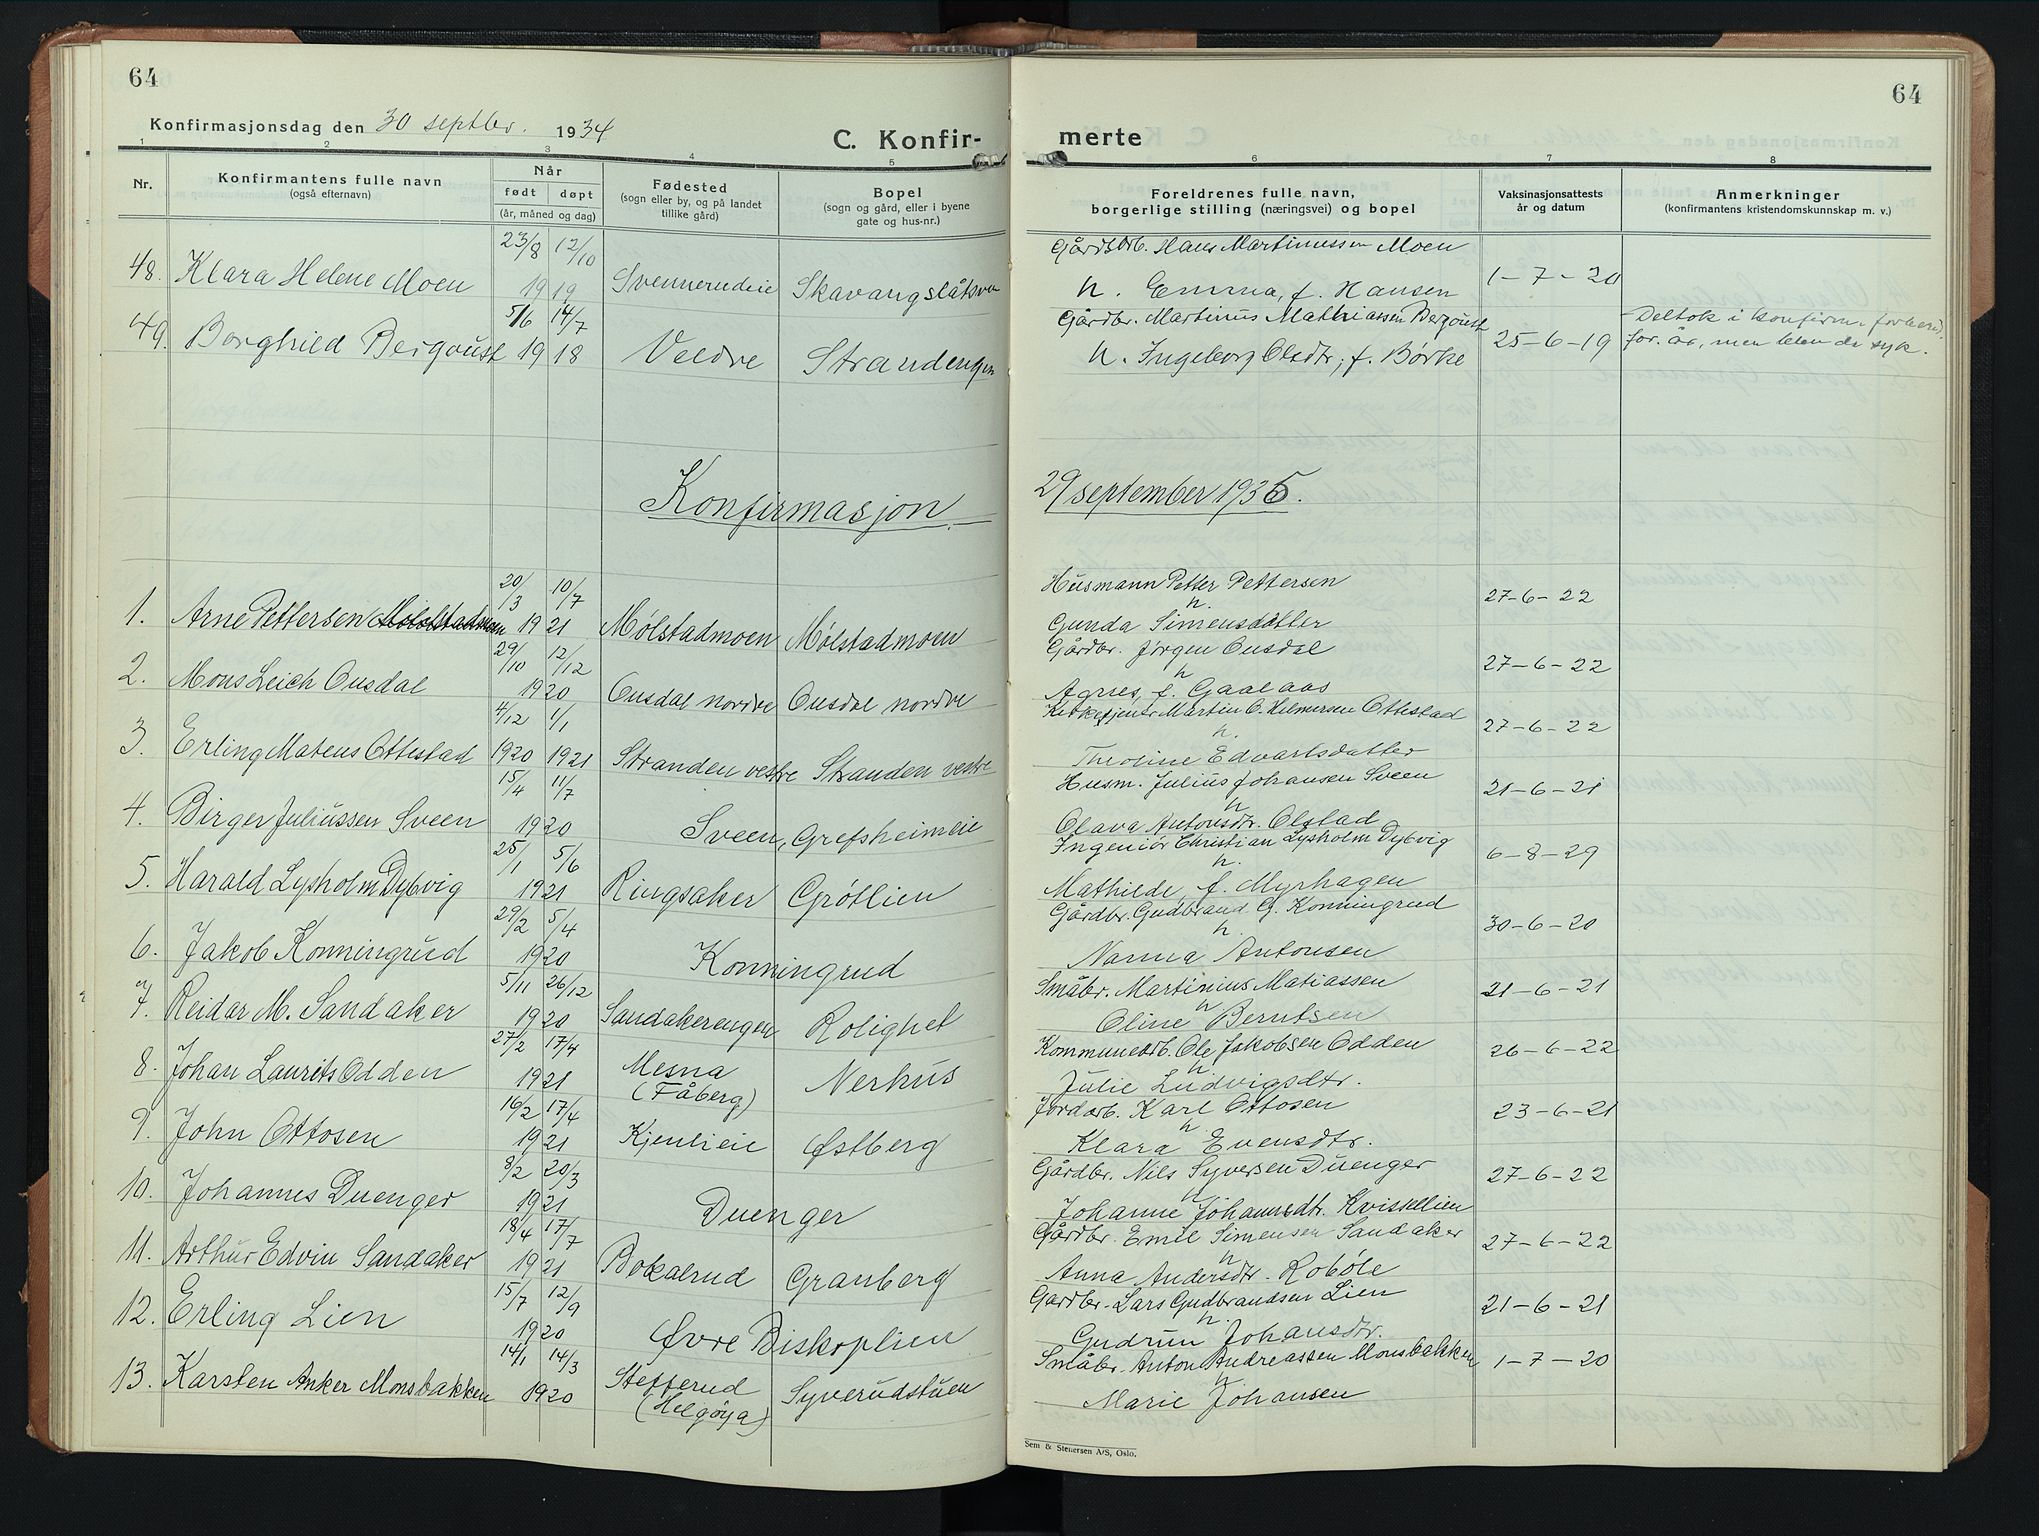 64
64
Konfirmasjonsdag den 30 septbr. 1934
C. Konfir-
merte
1 2 3 4 5 6 7 8
Nr.
Konfirmantens fulle navn
(også efternavn)
Når
født døpt
(år, måned og dag)
Fødested
(sogn eller by, og på landet
tillike gård)
Bopel
(sogn og gård, eller i byene
gate og hus-nr.)
Foreldrenes fulle navn,
borgerlige stilling (næringsvei) og bopel
Vaksinasjonsattests
år og datum
Anmerkninger
(konfirmantens kristendomskunnskap m. v.)
23/8 12/10 Gårdbr. Hans Martinussen Moen
48. Klara Helene Moen 1919 Svennerudeie 1-7-20
h. Emma, f. Hansen
5/6 14/7 Gårdbr. Martinus Mathiassen Bergqust Deltok i konfirm.
49. Borghild Bergqust 1918 Veldre Strandengen h. Ingeborg Olsdtr, f. Børke 25-6-19 for. år, men blev da syk.
Konfirmasjon 29 september 1935.
20/3 10/7 Husmann Petter Pettersen
1. Arne Pettersen 1921 Mølstadmoen Mølstadmoen h. 27-6-22
Gunda Simensdatter
29/10 12/12 Gårdbr. Jørgen Ousdal
2. Mons Leich Ousdal 1920 Ousdal nordre Ousdal nordre h 27-6-22
Agnes, f. Gaalaas
4/12 1/1 Kirketjener Martin O. Helmersen Ottestad
3. Erling Mateus Ottestad 1920 1921 Stranden vestre Stranden vestre h. 27-6-22
Theoline Edvartsdatter
15/4 11/7 Husm. Julius Johansen Sveen
4. Birger Juliussen Sveen 1920 Sveen, Grefsheimeie h 21-6-21
Olava Antonsdtr. Olstad
25/1 5/6 Ingeniør Christian Lysholm Dybvig
5. Harald Lysholm Dybvig 1921 Ringsaker Grøtlien h. 6-8-29
Mathilde, f. Myrhagen
29/2 5/4 Gårdbr. Gudbrand G. Konningrud
6. Jakob Konningrud 1920 Konningrud h. 30-6-20
Nanna Antonsen
5/11 26/12 Småbr. Martinius Matiassen
7. Reidar M. Sandaker 1920 Sandakerengen Rolighet h 21-6-21
Oline Berntsen
27/2 17/4 Kommunearb. Ole Jakobsen Odden
8. Johan Laurits Odden 1921 Mesna (Fåberg) Nerhus h 26-6-22
Julie Ludvigsdtr.
16/2 17/4 Jordarb. Karl Ottosen
9. John Ottosen 1921 Kjenlieie Østberg h 23-6-21
Klara Evensdtr.
8/2 20/3 Gårdbr. Nils Syversen Duenger
10. Johannes Duenger 1921 Duenger h 27-6-22
Johanne Johannesdtr. Kvissellien
18/4 17/7 Gårdbr. Emil Simensen Sandaker
11. Arthur Edvin Sandaker 1921 Bokalrud Granberg h 27-6-22
Anna Andersdtr. Robøle
15/7 12/9 Gårdbr. Lars Gudbrandsen Lien
12. Erling Lien 1920 Øvre Biskoplien h. 21-6-21
Gudrun Johansdtr.
14/1 14/3 Småbr. Anton Andreassen Monsbakken
13. Karsten Anker Monsbakken 1920 Stetterud (Helgøya) Syverudstuen h 1-7-20
Marie Johansen
Sem & Stenersen A/S, Oslo.